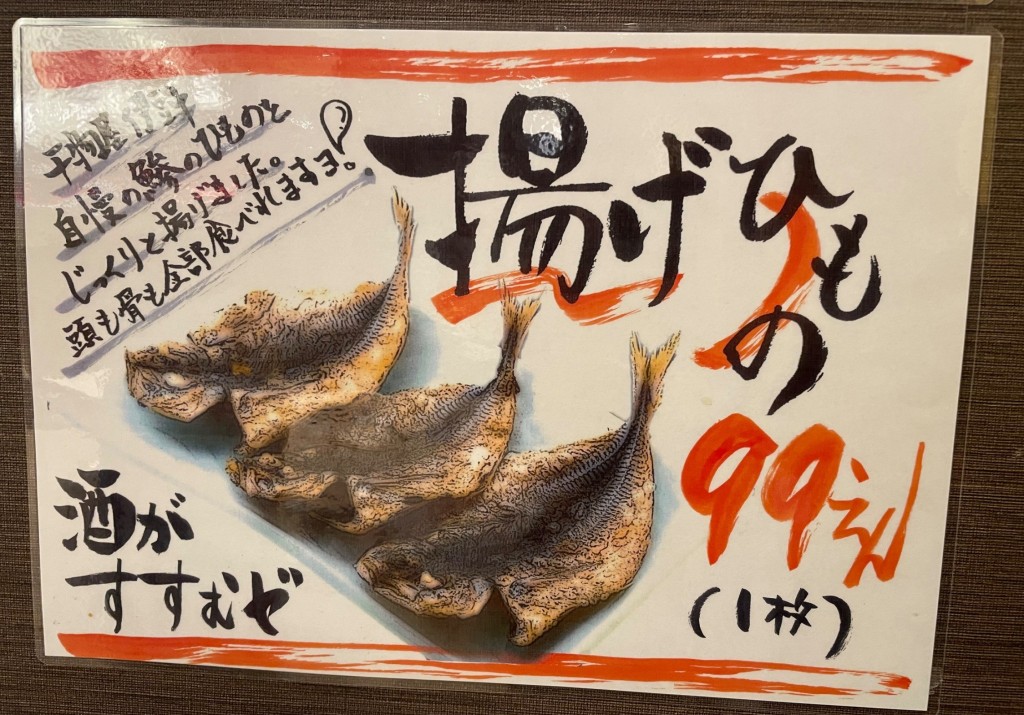 干物屋
自慢の鯵のひものと
じっくりと揚げました。
頭も骨も全部食べれますヨ。
揚げ
ひもの
99えん
(1枚)
酒が
すすむぜ